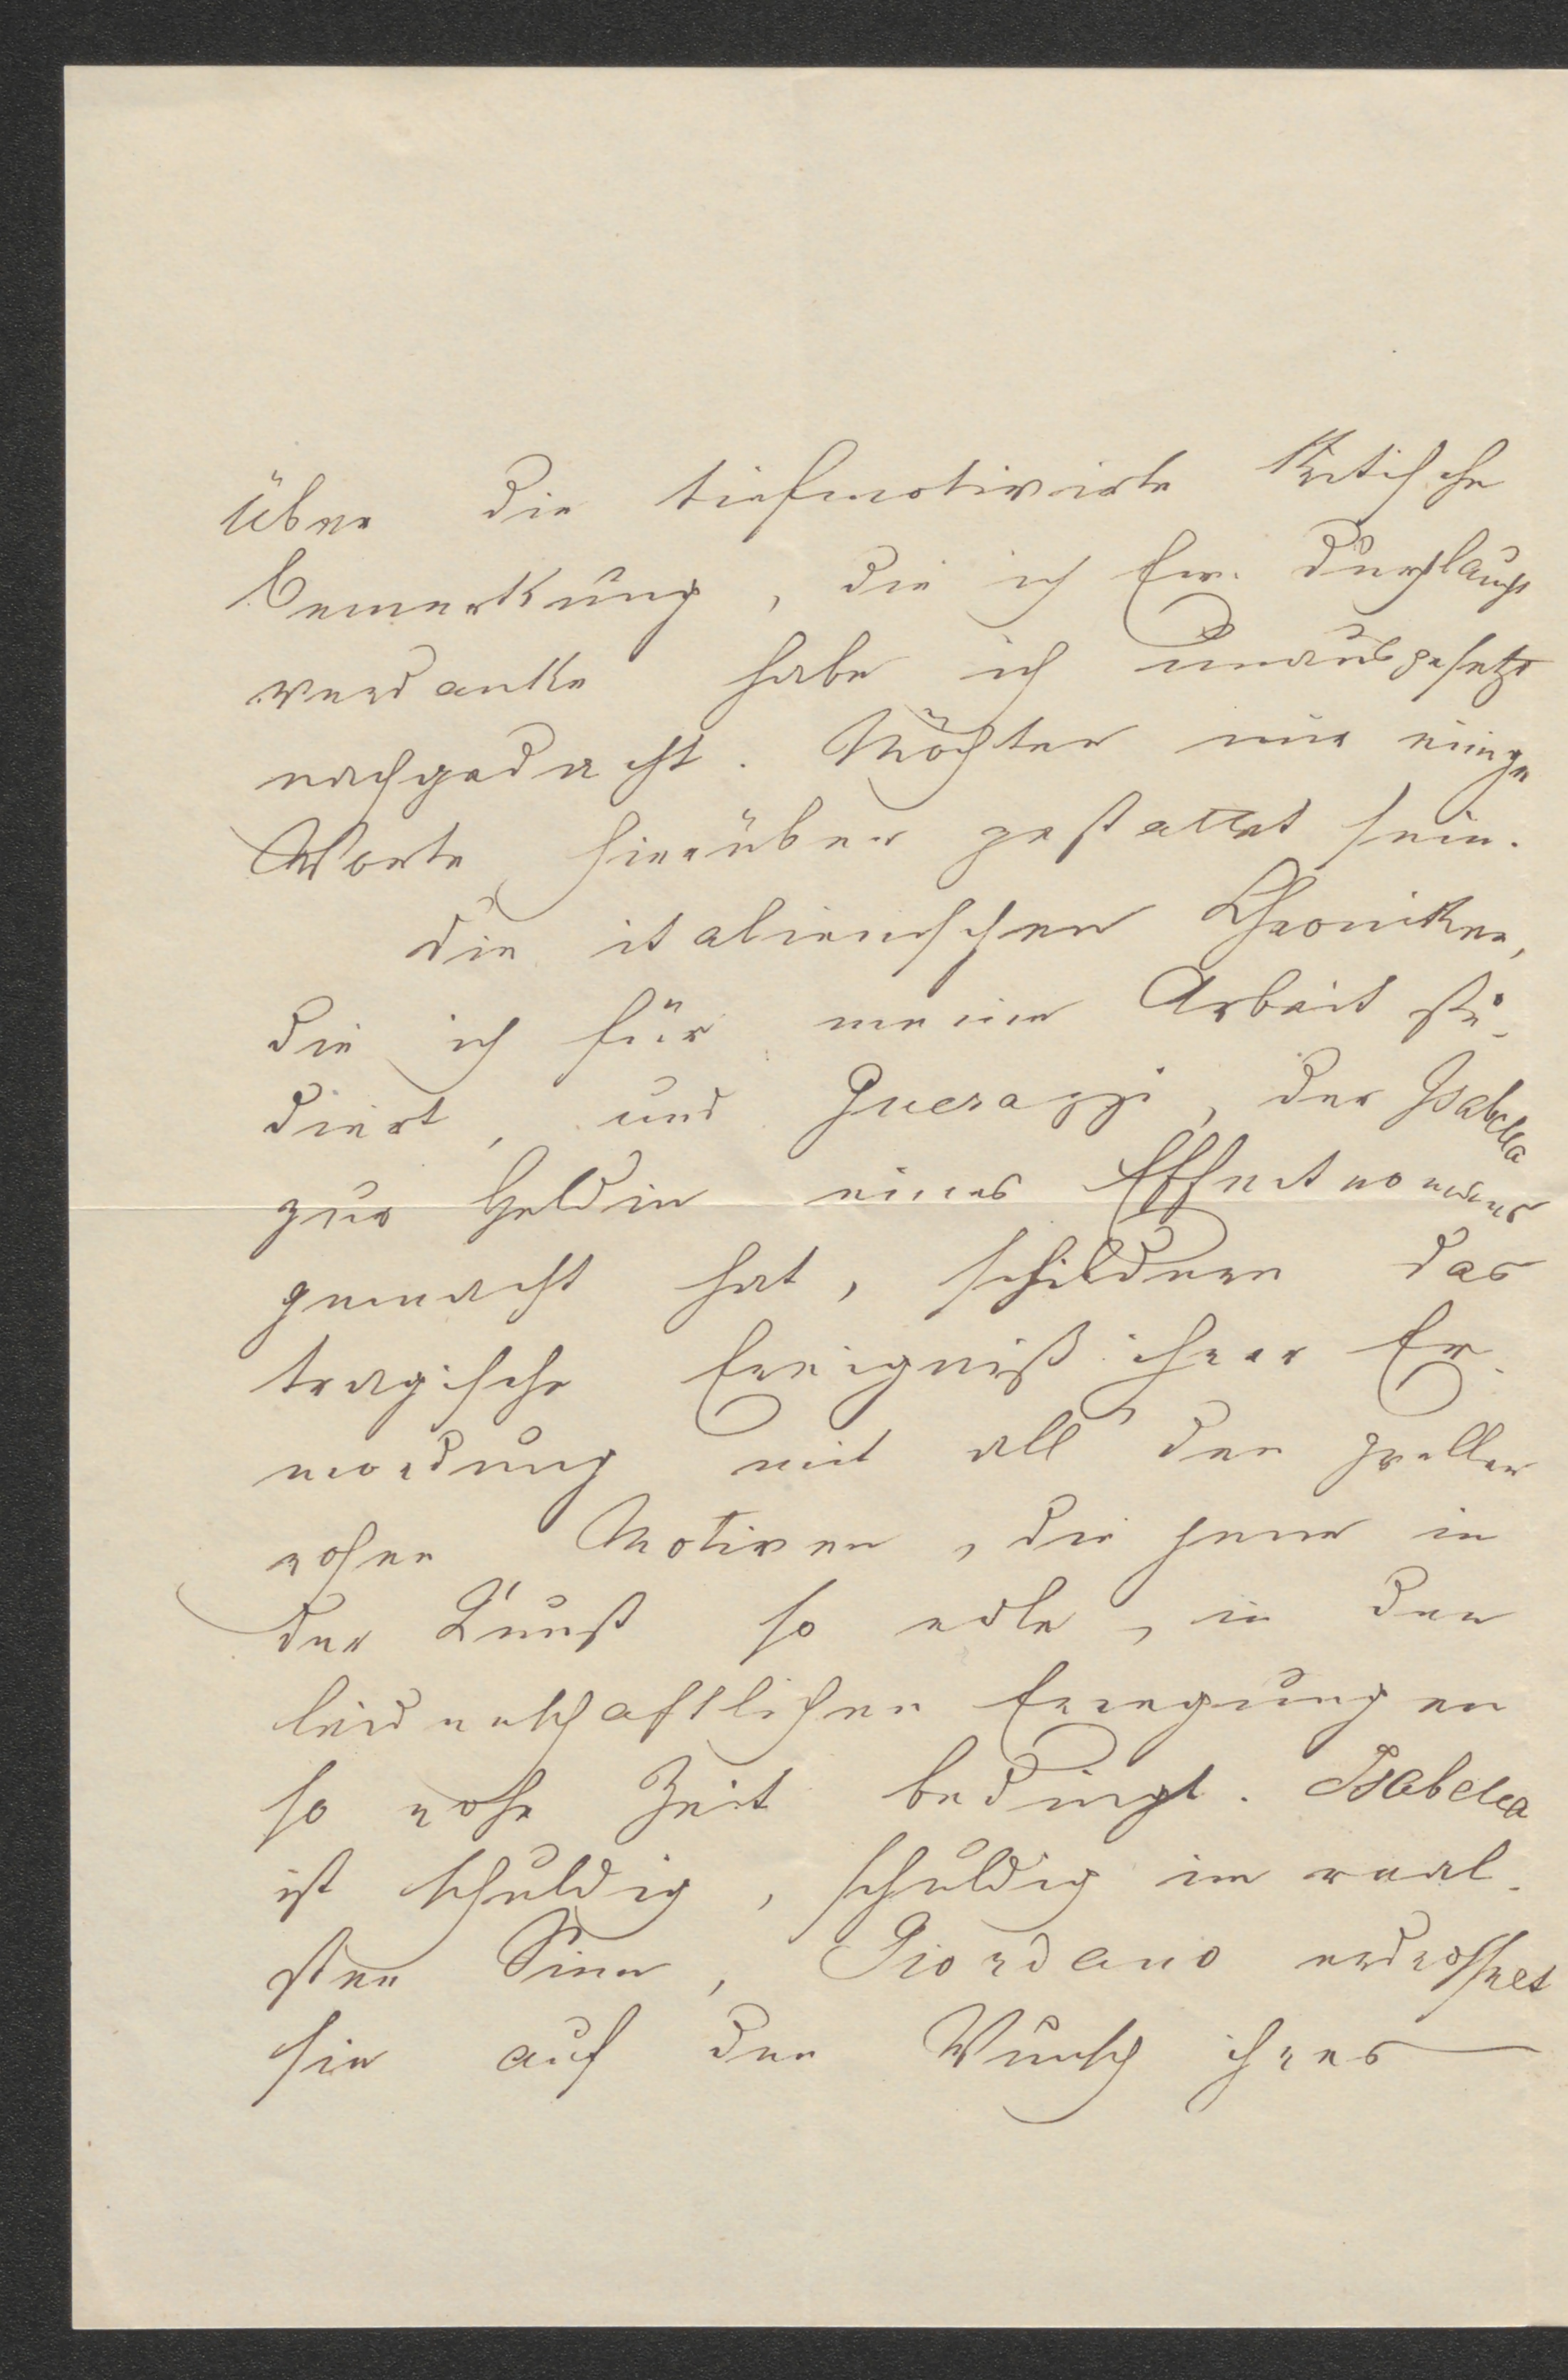 über die tiefmotivirte kritische
Bemerkung, die ich Ew. Durchlaucht
verdanke habe ich unausgesetzt
nachgedacht. Möchten mir einige
Worte hierüber gestattet sein.
Die italienischen Chroniken,
die ich für meine Arbeit stu-
diert, und Guerazzi, der Isabella
zur Heldin eines Effectromans
gemacht hat, schildern das
tragische Ereigniß ihrer Er-
mordung mit all den grellen
rohen Motiven, die jene in
der Kunst so edle, in den
leidenschaftlichen Erregungen
so rohe Zeit bedingt. Isabella
ist schuldig, schuldig im real-
sten Sinn, Giordano erdrosselt
sie auf den Wunsch ihres